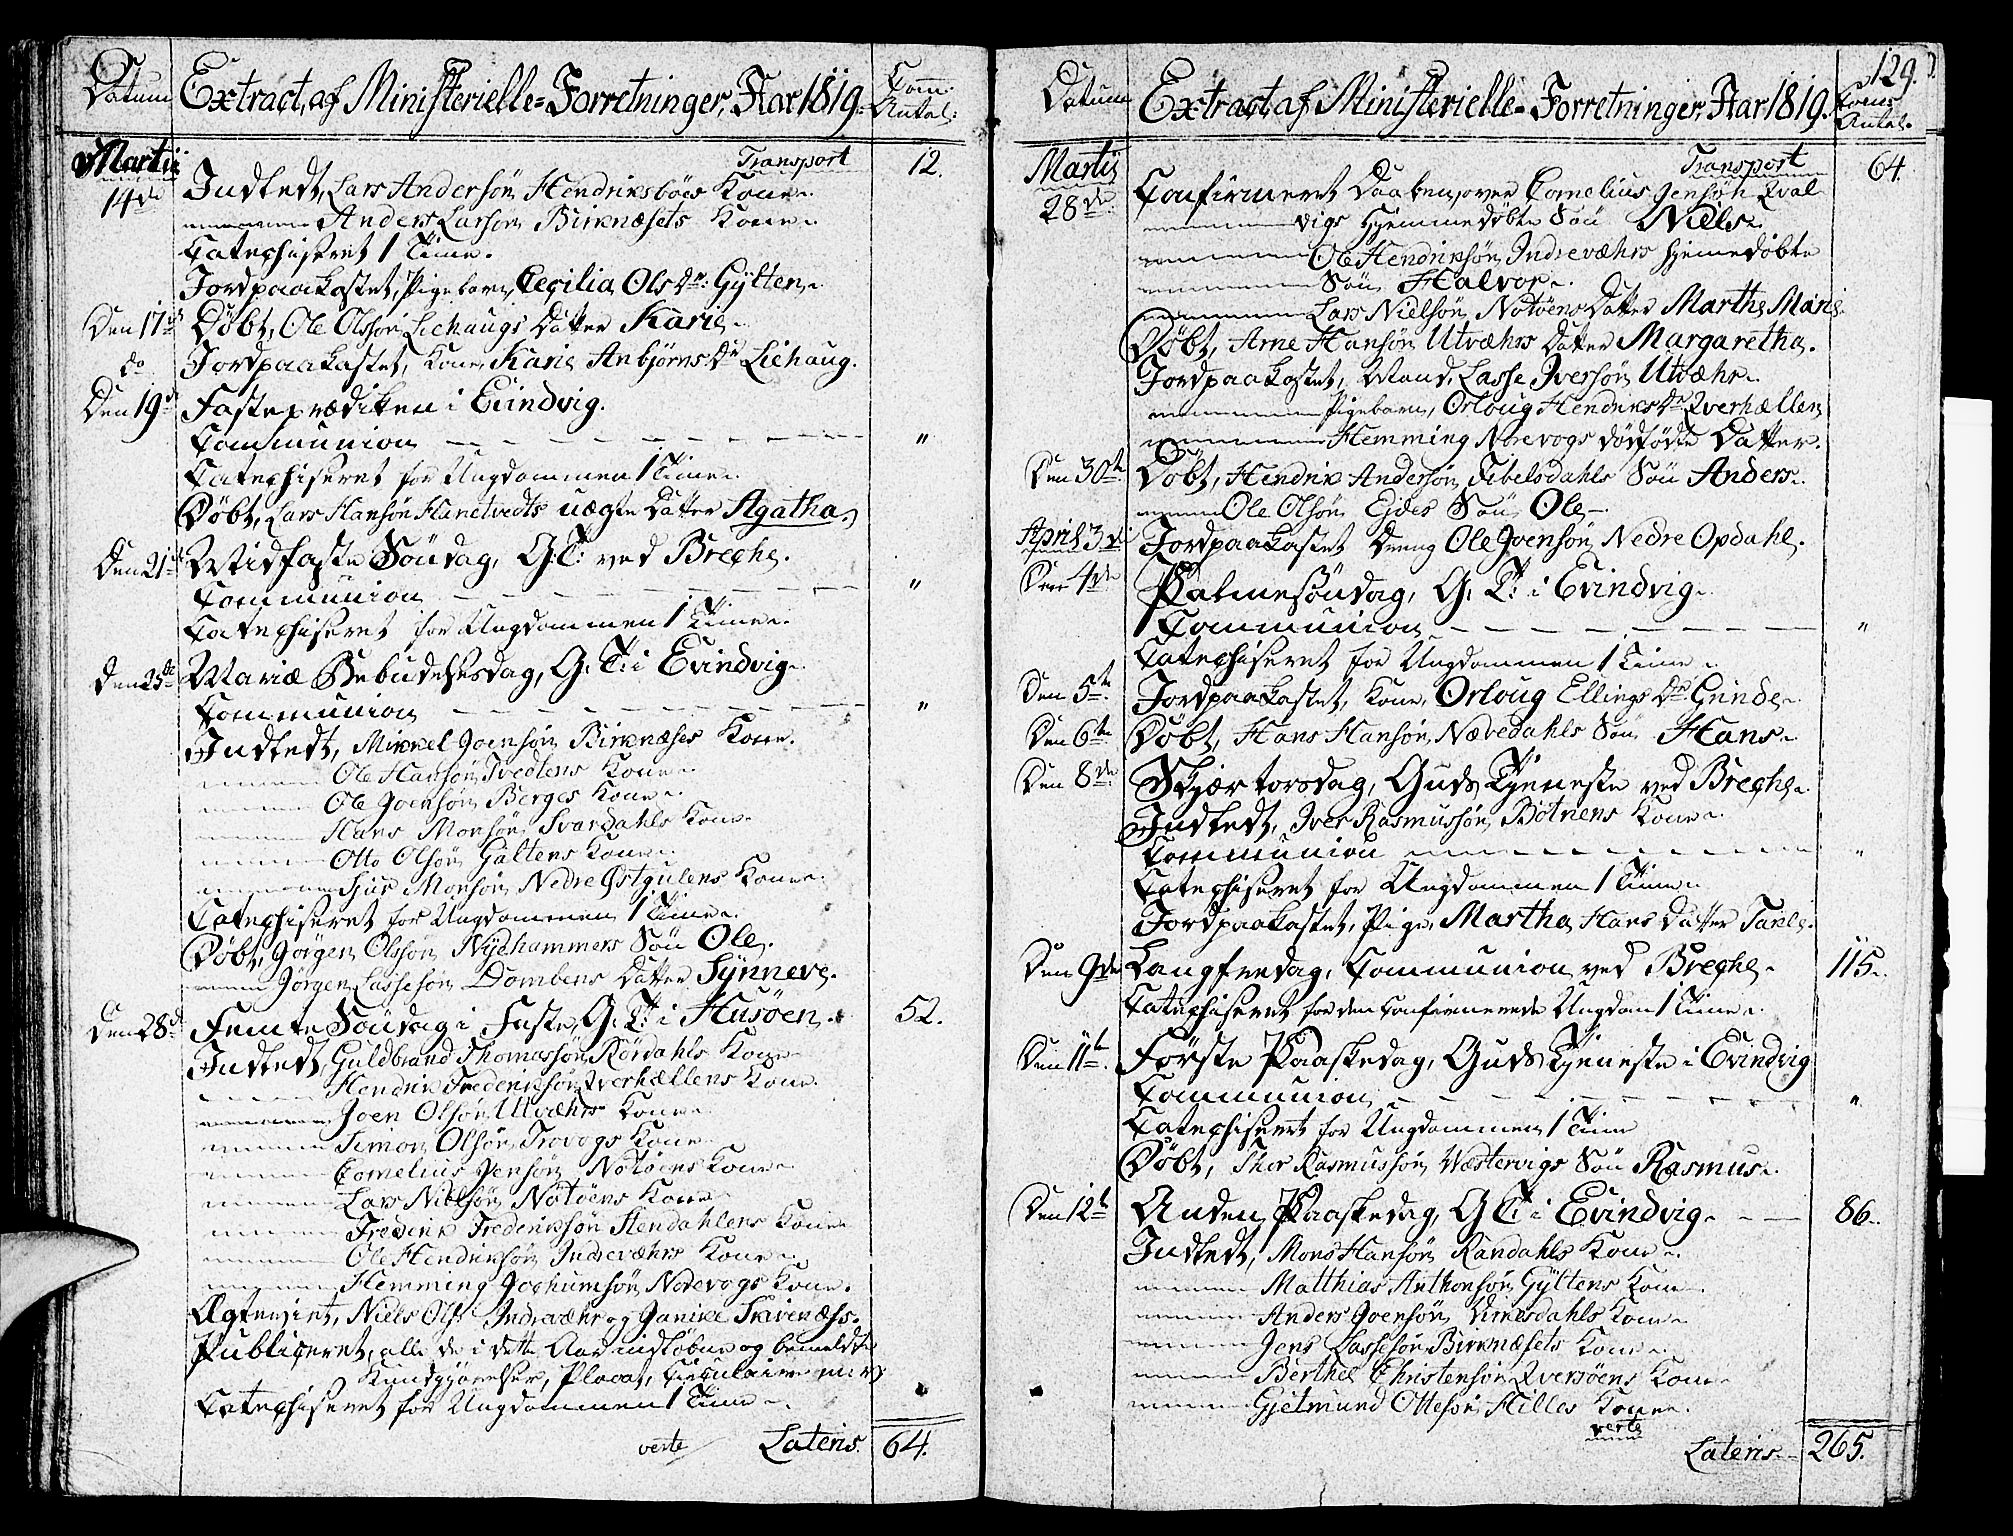 Datum
Extract af Ministerielle-Forretninger, Aar 1819.
Com: Antal:
Martii
Transport 12.
14de Indledt, Lars Andersøn Hendriksbøes Kone.
Anders Larsøn Birknæsets Kone.
Catechiseret 1 Time.
Jordpaakastet, Pigebarn, Cecilia Ols Dr: Gylten.
Den 17de Døbt, Ole Olsøn Liehaugs Datter Kari.
do Jordpaakastet, Kone, Kari Anbjørns Dr Liehaug.
Den 19de Fasteprædiken i Evindvig.
Communion "
Catechiseret for Ungdommen 1 Time.
Døbt, Lars Hansøn Hanetvedts uægte Datter Agatha.
Den 21de Midfaste Søndag, G. T: ved Breche.
Communion "
Catechiseret for Ungdommen 1 Time.
Den 25de Mariæ Bebudelsesdag, G. T: i Evindvig.
Communion "
Indledt, Mikkel Joensøn Birknæses Kone.
Ole Hansøn Tvedtens Kone.
Ole Joensøn Berges Kone.
Hans Monsøn Svardahls Kone.
Otto Olsøn Galtens Kone.
Siur Monsøn Nedre Østgulens Kone.
Catechiseret for Ungdommen 1 Time.
Døbt, Jørgen Olssøn Nyehammers Søn Ole.
Jørgen Lassesøn Dombens Datter Synneve.
Den 28de Femte Søndag i Faste, G. T: i Husøen. 52.
Indledt, Guldbrand Thomassøn Rørdahls Kone
Hendrik Frederiksøn Qverhællens Kone.
Joen Olsøn Utvæhrs Kone.
Simon Olsøn Trovogs Kone.
Cornelius Jensøn Notøens Kone.
Lars Nielsøn Notøens Kone.
Frederik Frederiksøn Stendahlens Kone
Ole Hendriksøn Indrevæhrs Kone.
Hemming Jochumsøn Norevogs Kone.
Ægteviet, Niels Ols: Indrevæhr og Ganike Skivenæss.
Publiceret, alle de i dette Aar indløbne og bemeldte
Kundgjørelser, Placat, Circulaire mer
Catechiseret for Ungdommen 1 Time.
verte Lateris. 64.
129.
Datum
Extract af Ministerielle-Forretninger, Aar 1819.
Coms Antal.
Martii
Transport 64.
28de Confirmeret Daaben, over Cornelius Jensøn Qval-
vigs Hjemmedøbte Søn Niels.
Ole Hendriksøn Indrevæhrs hjemedøbte
Søn Halvor.
Lars Nielsøn Notøens Datter Marthe Marie
Døbt, Arne Hansøn Utvæhrs Datter Margaretha.
Jordpaakastet, Mand, Lasse Iversøn Utvæhr.
Pigebarn, Orloug Hendriks Dr Qverhællen
Hemming Norevogs dødfødte Datter.
Den 30te Døbt, Hendrik Andersøn Tibelsdahls Søn Anders.
Ole Olsøn Eides Søn Ole.
April 3die Jordpaakastet Dreng Ole Joensøn Nedre Opdahl.
Den 4de Palmesøndag, G. T: i Evindvig.
Communion "
Catechiseret for Ungdommen 1 Time.
Den 5te Jordpaakastet, Kone, Orloug Ellings Dr Grinde.
Den 6te Døbt, Hans Hansøn Nævedahls Søn Hans.
Den 8de Skjærtorsdag, Guds Tjeneste ved Breche.
Indledt, Iver Rasmussøn Botnens Kone.
Communion "
Catechiseret for Ungdommen 1 Time.
Jordpaakastet, Pige, Martha Hans Datter Tarle.
Den 9de Langfredag, Communion ved Breche. 115.
Catechiseret for den confirmerede Ungdom 1 Time.
Den 11te Første Paaskedag, Guds Tjeneste i Evindvig
Communion "
Catechiseret for Ungdommen 1 Time
Døbt, Thor Rasmussøn Wæstervigs Søn Rasmus.
Den 12te Anden Paaskedag, G T: i Evindvig. 86.
Indledt, Mons Hansøn Randahls Kone.
Matthias Anthonsøn Gyltens Kone
Anders Joensøn Virkesdahls Kone.
Jens Lassesøn Birknæsets Kone.
Berthel Christensøn Qversøens Kone
Gjetmund Ottesøn Hilles Kone.
verte
Lateris. 265.